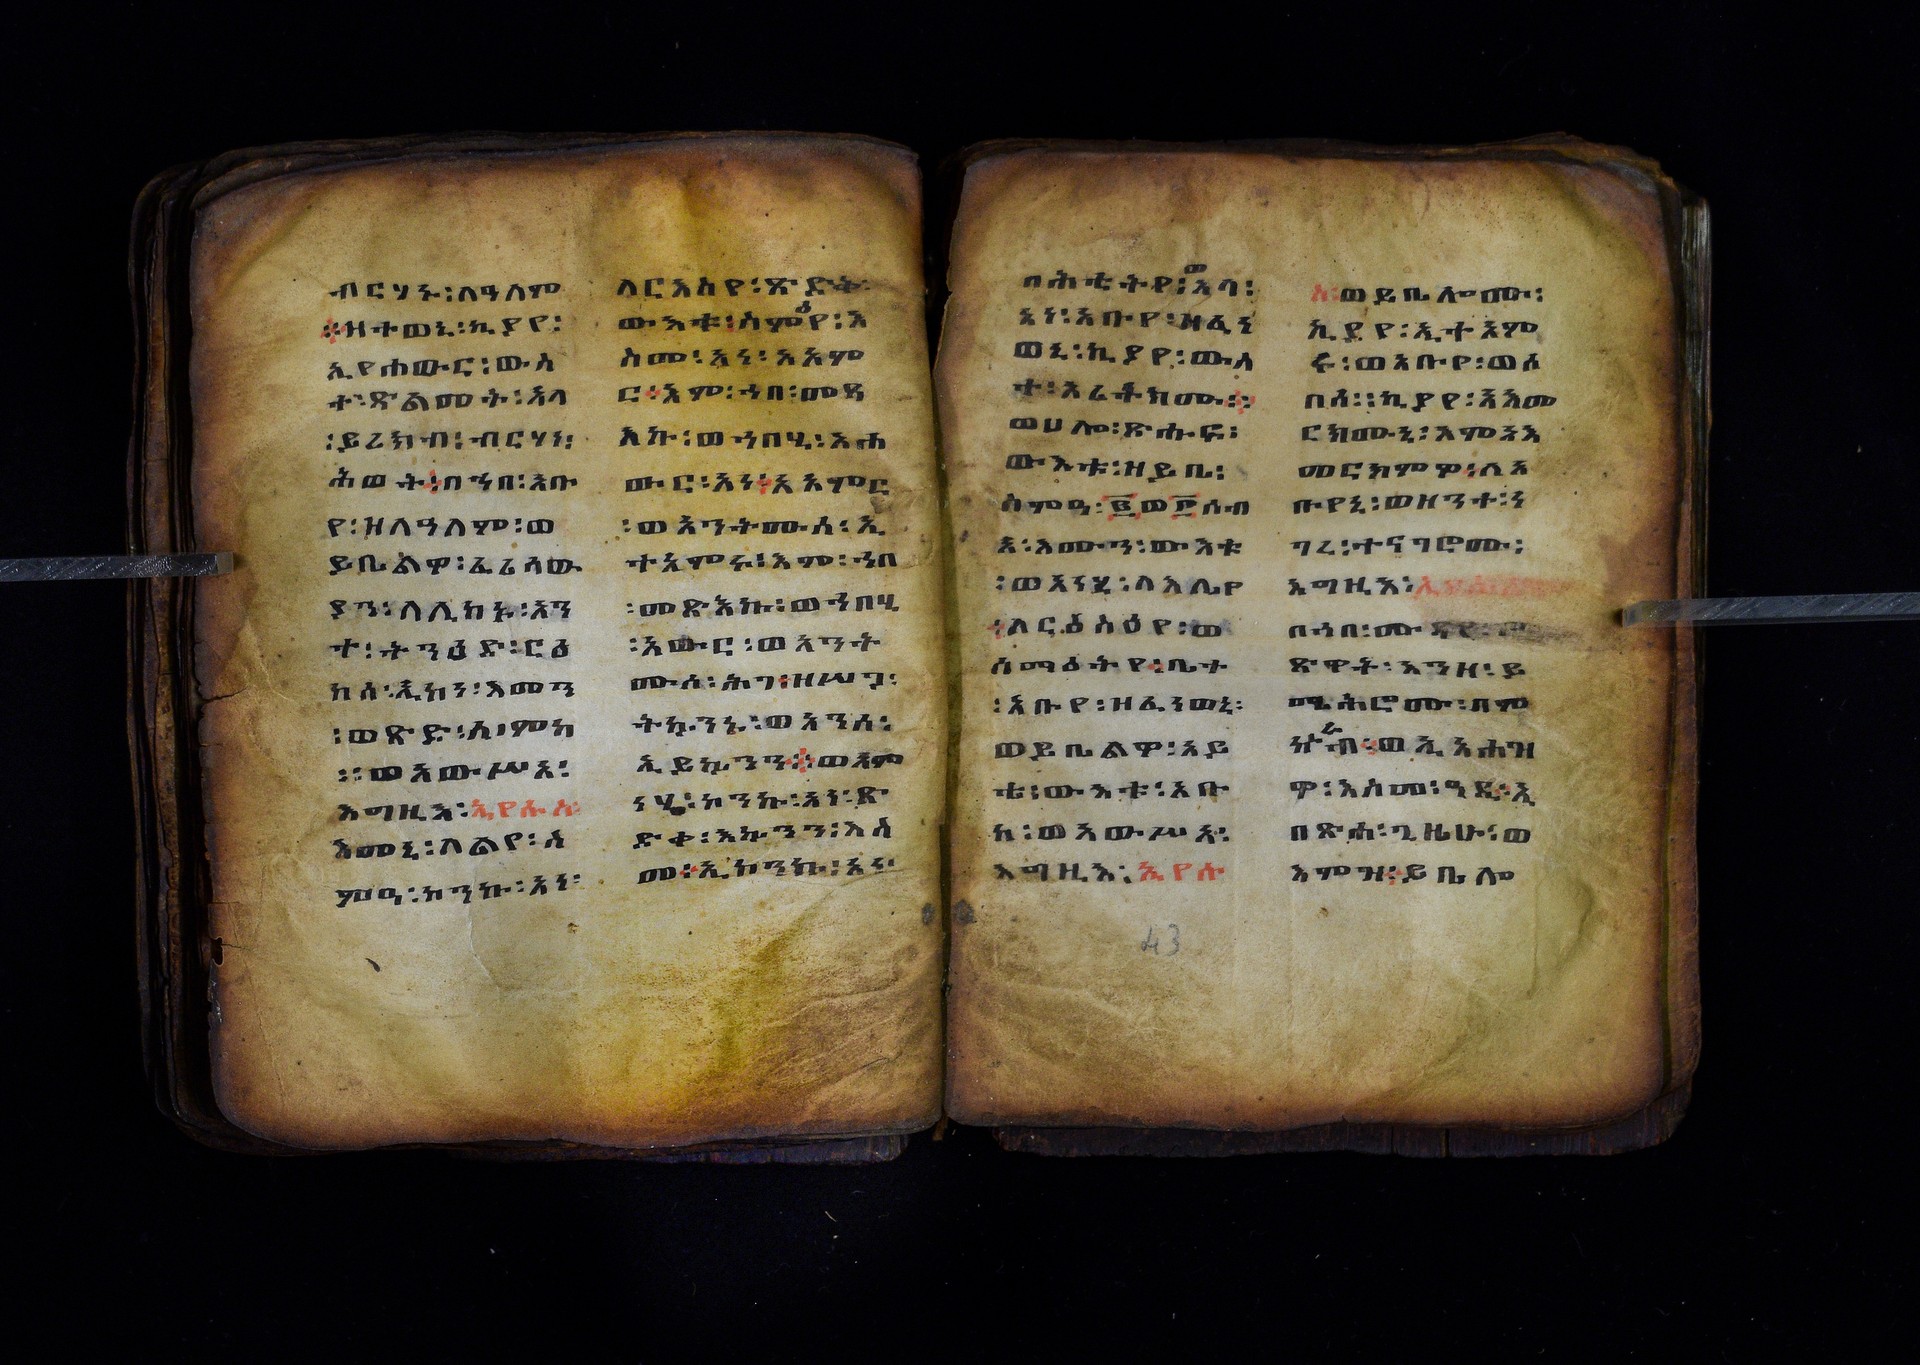 ብርሃኑ፡ለዓለም
፨ዘተወኒ፡ኪያየ፡
ኢየሐውር፡ውስ
ተ፡ጽልመት፡አላ
፡ይረክብ፡ብርሃነ፡
ሕወት፡በኀበ፡አቡ
የ፡ዘለዓለም፡ወ
ይቤልዎ፡ፈሪሳው
ያን፡ለሊከኑ፡አን
ተ፡ትንዕድ፡ርዕ
ሰ፡ኢኮነ፡እመን
፡ወጽድ፡ስምከ
፡፡ወአውሥአ፡
እግዚእ፡ኢየሱስ፡
እመኒ፡ለልየ፡ስ
ምዐ፡ኮንኩ፡አነ፡
ለርእስየ፡ጽድቅ፡
ውእቱ፡ስምዕየ፡እ
ስመ፡አነ፡አአም
ር፡እም፡ኀበ፡መጻ
እኩ፡ወኀበሂ፡አሐ
ውር፡አነ፡አአምር
፡ወአንትሙሰ፡ኢ
ተአምሩ፡እም፡ኀበ
፡መጽአኩ፡ወኀበሂ
፡አውር፡ወአንት
ሙሰ፡ሕገ፡ዘሥጋ፡
ትኴንኑ፡ወአንሰ፡
ኢይኴንን፨ወእም
ነሂ፡ኮንኩ፡አነ፡ጽ
ድቀ፡እኴንን፡እስ
መ፡ኢኮንኩ፡አነ፡
በሕቲትየ፡ወአላ፡
አነ፡አቡየ፡ዘፈነ
ወኒ፡ኪያየ፡ውስ
ተ፡እሪትክሙ፨
ወሀሎ፡ጽሑፍ፡
ውእቱ፡ዘይቤ፡
ስምዐ፡፪ወ፫ሰብ
እ፡እሙን፡ውእቱ
፡ወእንሂ፡ለእሊየ
፡ለርዕስዕየ፡ወ
ሰማዕትየ፡ቤተ
፡አቡየ፡ዘፈነወኒ፡
ወይቤልዎ፡አይ
ቴ፡ውእቱ፡አቡ
ከ፡ወአውሥአ፡
እግዚእ፡ኢየሱ
ስ፡ወይቤሎሙ፡
ኪያየ፡ኢተአም
ሩ፡ወአቡየ፡ወሰ
በሰ፡፡ኪያየ፡አእመ
ርክሙኒ፡እምአእ
መርክምዎ፡ለአ
ቡየኒ፡ወዘንተ፡ነ
ገረ፡ተናገሮሙ፡
እግዚእ፡ኢየሱስ
በኀበ፡ሙዳየ፡
ጽዋት፡እንዘ፡ይ
ሜሕሮሙ፡በም
ኵራብ፡ወኢአሐዝ
ዎ፡እስመ፡ዓዲ፡ኢ
በጽሐ፡ጊዜሁ፡ወ
እምዝ፡ይቤሎ
43